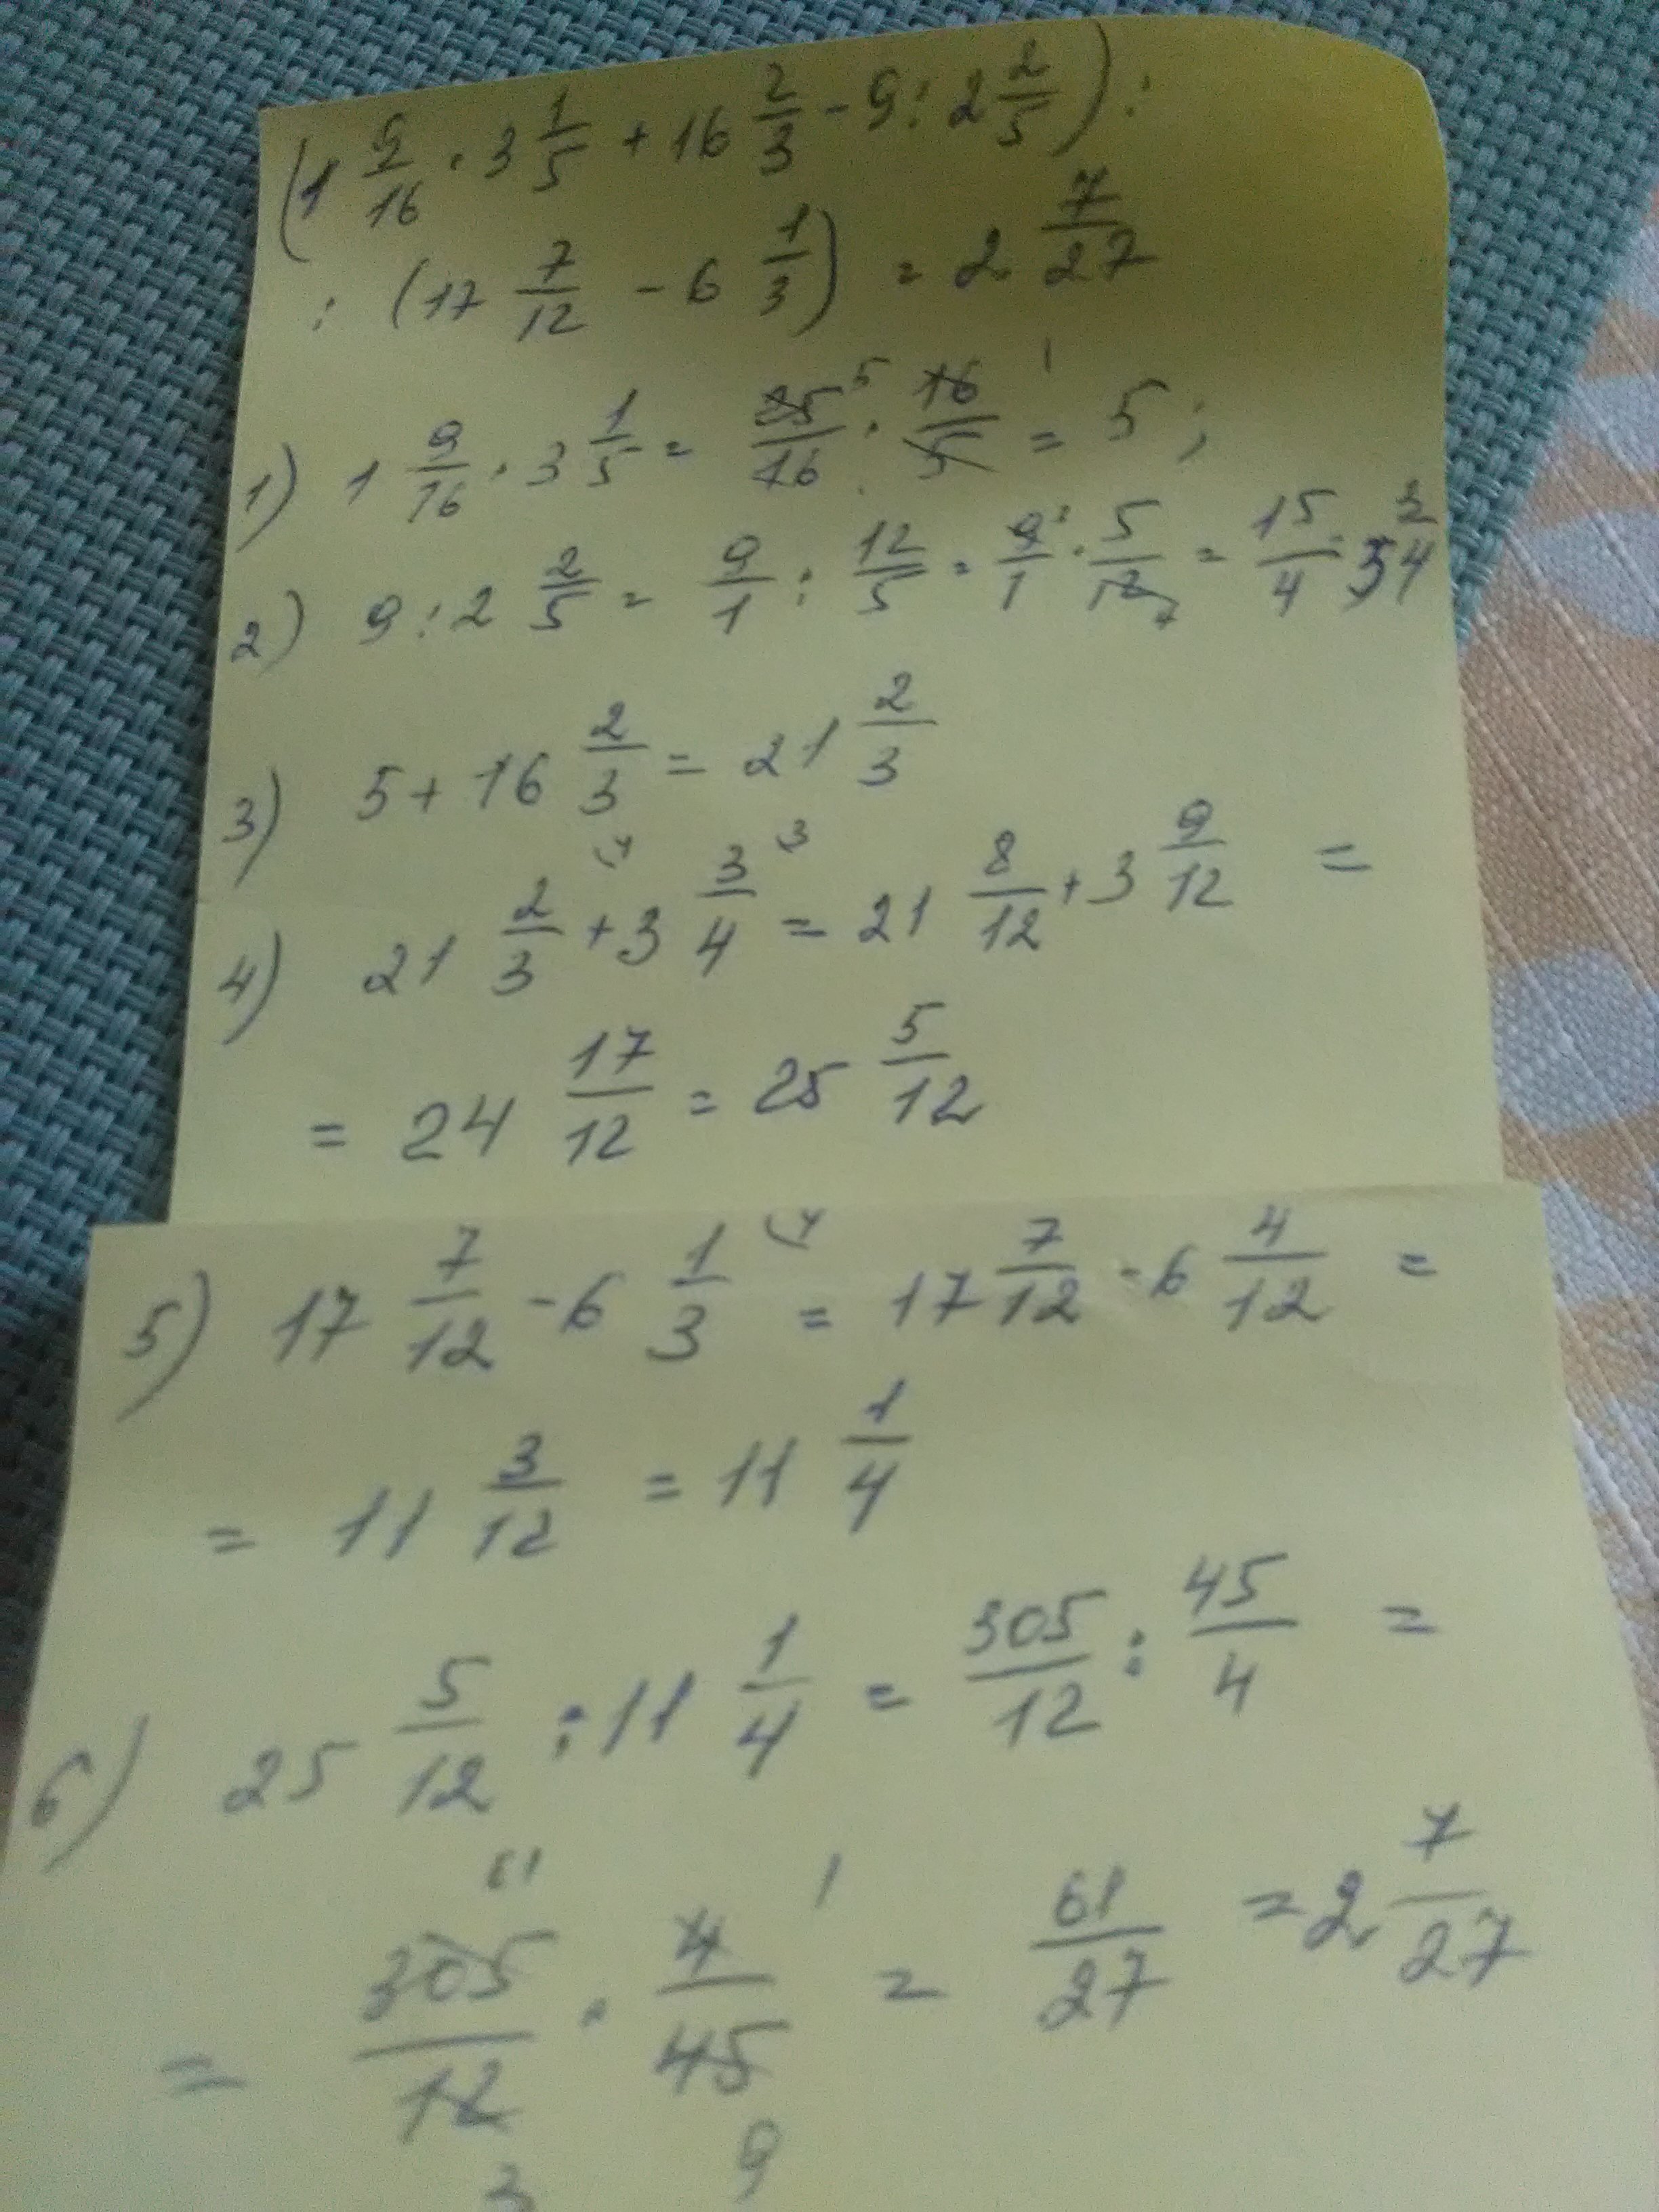 (1 9/16 · 3 1/5 + 16 2/3 - 9 : 2 2/5) :
: (17 7/12 - 6 1/3) = 2 7/27
1) 1 9/16 · 3 1/5 = 25/16 · 16/5 = 5 ;
2) 9 : 2 2/5 = 9/1 : 12/5 = 9/1 · 5/12 = 15/4 = 3 3/4
3) 5 + 16 2/3 = 21 2/3
4) 21 2/3 + 3 3/4 = 21 8/12 + 3 9/12 =
= 24 17/12 = 25 5/12
5) 17 7/12 - 6 1/3 = 17 7/12 - 6 4/12 =
= 11 3/12 = 11 1/4
6) 25 5/12 : 11 1/4 = 305/12 : 45/4 =
= 305/12 · 4/45 = 61/27 = 2 7/27